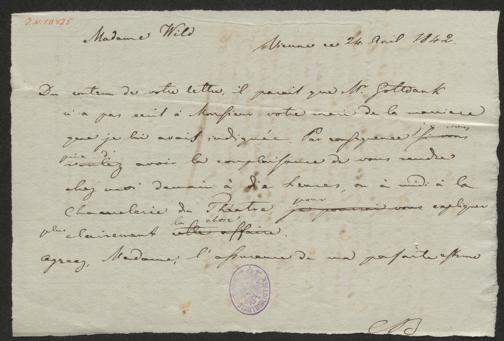 J.N. 10475
Madame Wild
Vienne ce 24 Avril 1842.
Du contenu de votre lettre, il parait que Mr.
n'a pas ecrit à Monsieur votre mari de la maniere
que je lui avait indiquée. Par consequence
avoir la complaisance de vous rendre
chez moi demain à heures, ou à midi à la
Chancelerie du Théatre pour vous expliquer
plus clairement la chose
agreez, Madame, l'assurance de ma parfaite estime